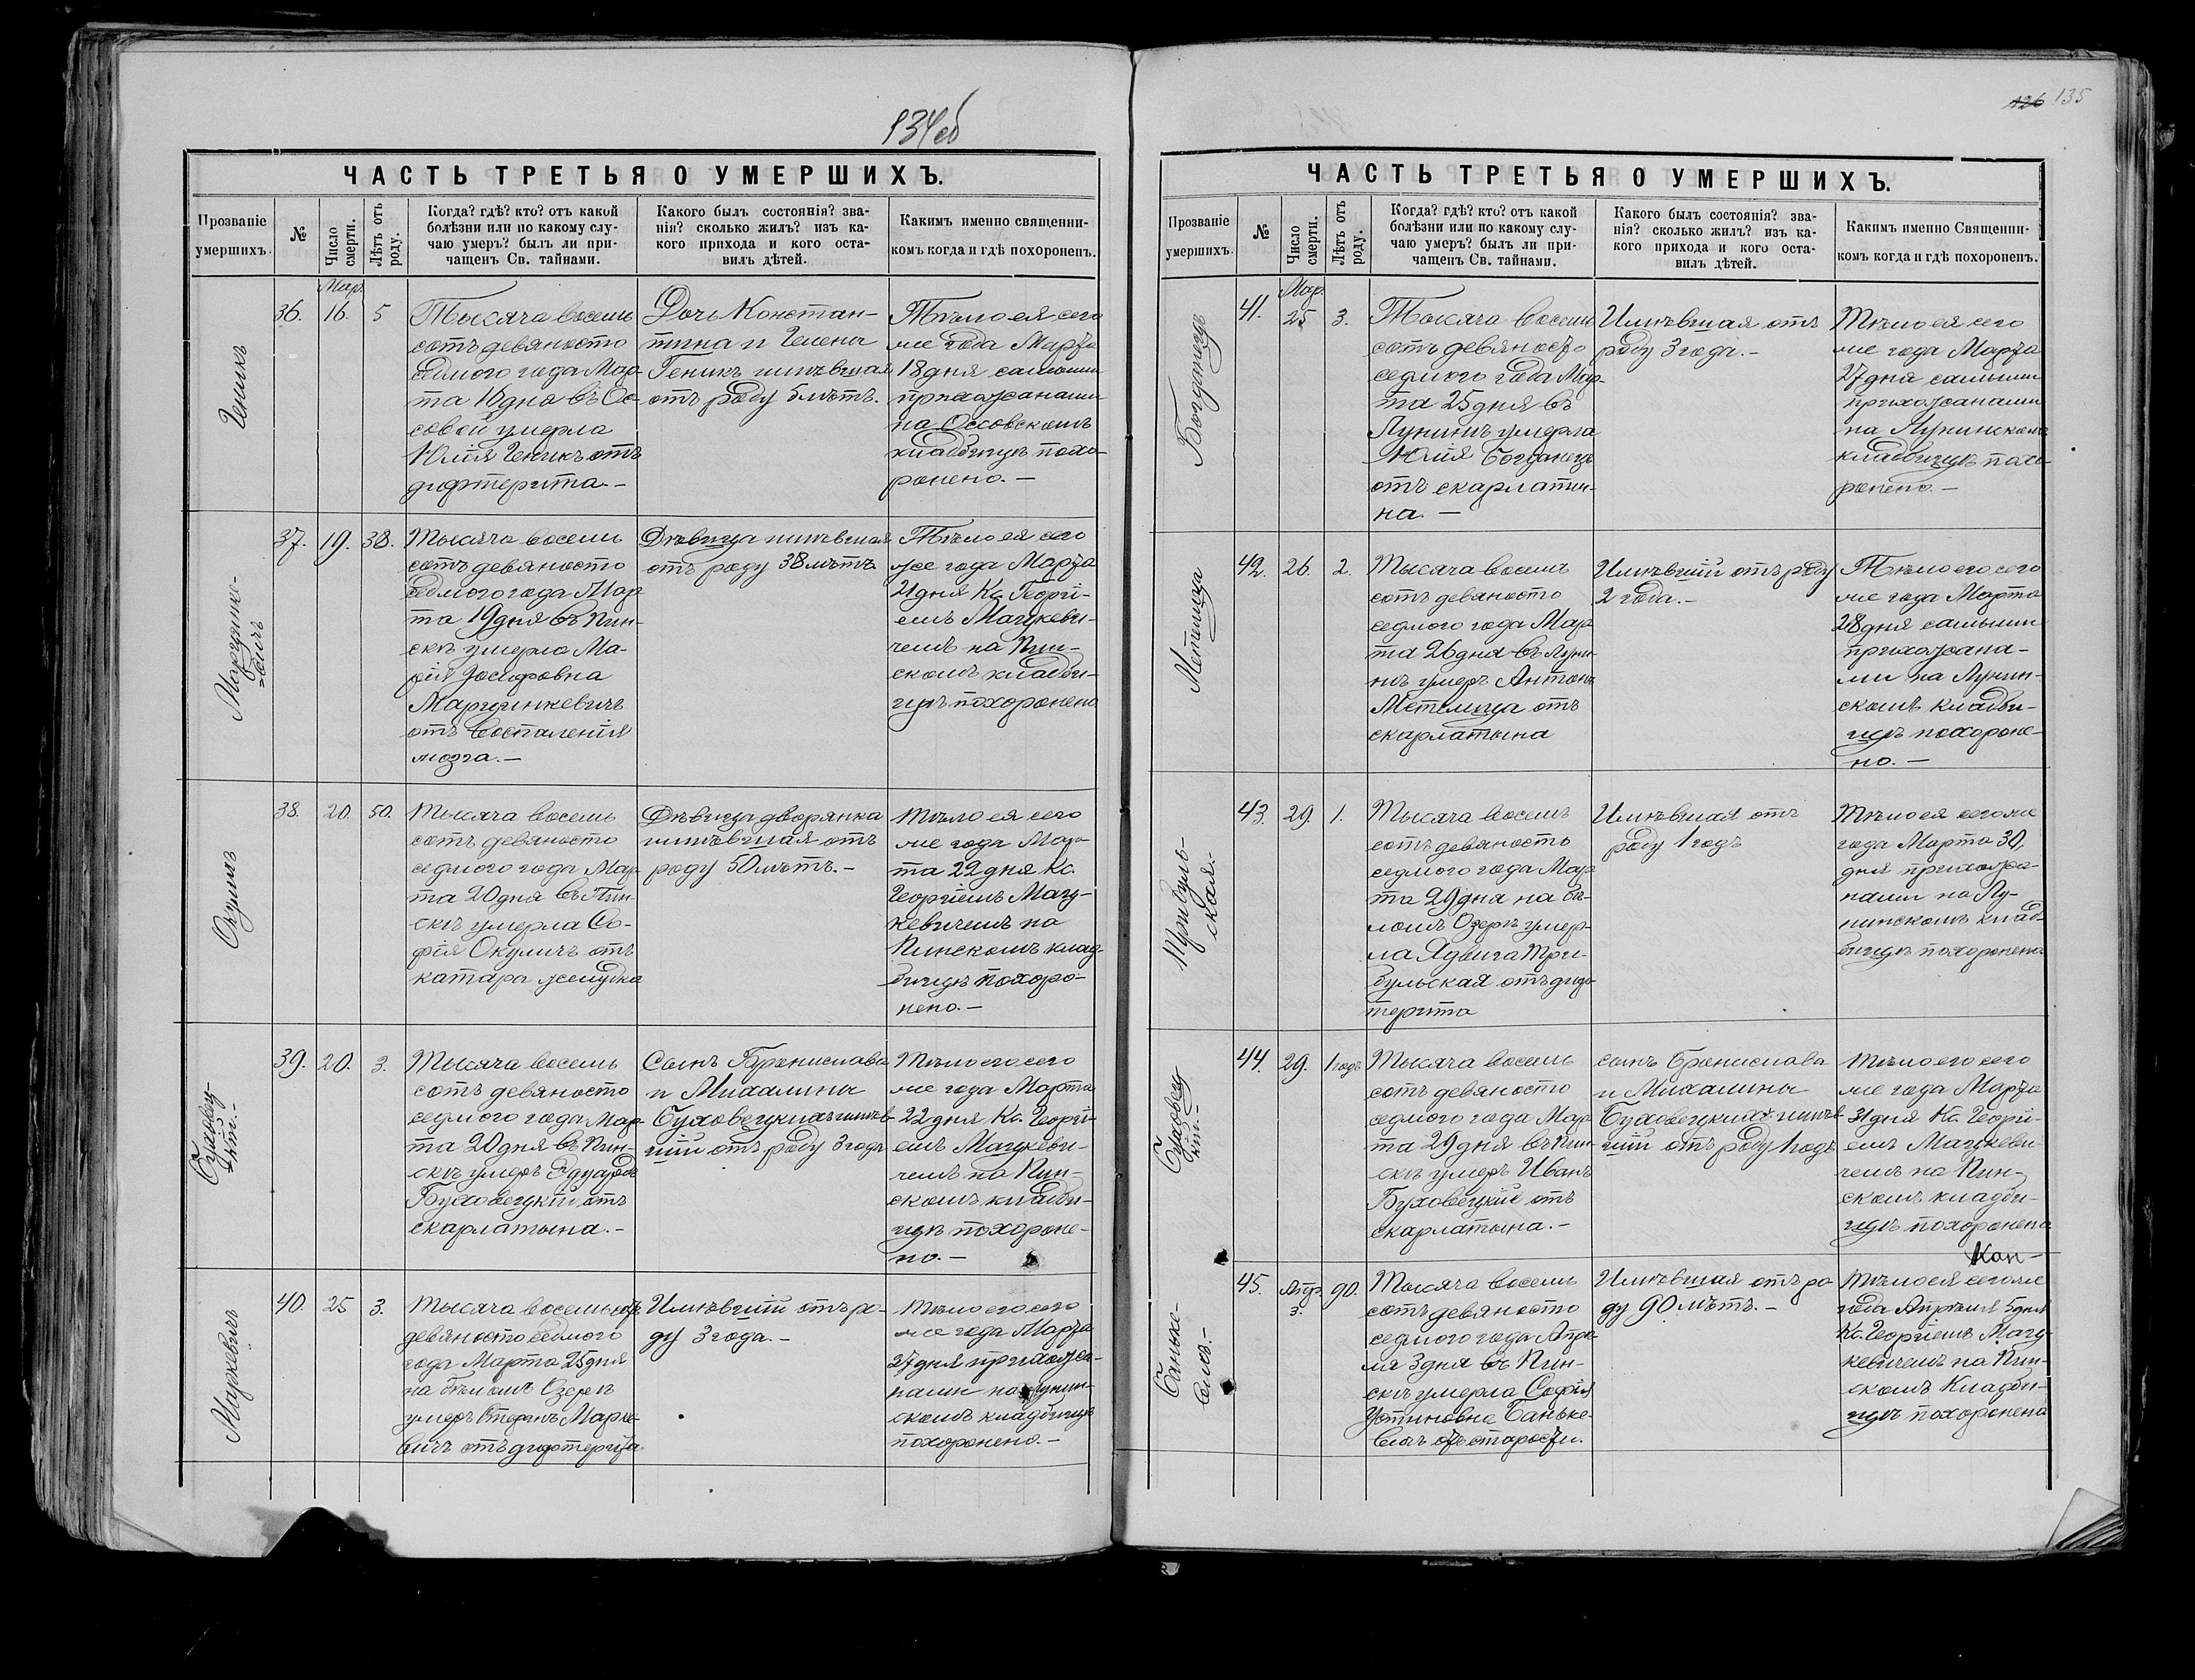 134об
ЧАСТЬ ТРЕТЬЯ О УМЕРШИХЪ.
Прозваніе умершихъ.
№
Число смерти.
Лѣтъ отъ роду.
Когда? гдѣ? кто? отъ какой
болѣзни или по какому слу-
чаю умеръ? былъ ли при-
чащенъ Св. тайнами.
Какого былъ состоянія? зва-
нія? сколько жилъ? изъ ка-
кого прихода и кого оста-
вилъ дѣтей.
Какимъ именно священни-
комъ когда и гдѣ похороненъ.
Геникъ
36.
Мар.
16.
5
Тысяча восемь
сотъ девяносто
седмого года Мар-
та 16 дня въ Ос-
совой умерла
Юлія Геникъ отъ
дифтерита.-
Дочь Констан-
тина и Гелены
Геникъ имѣвшая
отъ роду 5 лѣтъ.
Тѣло ея сего
же года Марта
18 дня самыми
прихожанами
на Оссовскомъ
кладбищѣ похо-
ронено.-
37.
19.
38.
Тысяча восемь
сотъ девяносто
седмого года Мар
та 19 дня въ Пин-
скѣ умерла Ма-
рія Іосифовна
Марцинкевичъ
отъ воспаленія
мозга.-
Дѣвица имѣвшая
отъ роду 38 лѣтъ.
Тѣло ея сего
же года Марта
21 дня Кс. Георгі-
емъ Мацкеви-
чемъ на Пин-
скомъ кладби-
щѣ похоронено
Окуличъ
38.
20.
50.
Тысяча восемь
сотъ девяносто
седмого года Мар-
та 20 дня въ Пин-
скѣ умерла Со-
фія Окуличъ отъ
катара желудка
Дѣвица дворянка
имѣвшая отъ
роду 50 лѣтъ.-
Тѣло ея сего
же года Мар-
та 22 дня Кс.
Георгіемъ Мацу-
кевичемъ на
Пинскомъ клад-
бищѣ похоро-
нено.-
Буховец-
кій.-
39.
20.
3.
Тысяча восемь
сотъ девяносто
седмого года Мар-
та 20 дня въ Пин-
скѣ умеръ Эдуардъ
Буховецкій отъ
скарлатына.-
Сынъ Бронислава
и Михалины
Буховецкихъ имѣв-
шій отъ роду 3 года
Тѣло его сего
же года Марта
22 дня Кс. Георгі-
емъ Мацукеви-
чемъ на Пин-
скомъ кладби-
щѣ похороне-
но.-
Маркевичъ
40.
25
3.
Тысяча восемь сотъ
девяносто седмого
года Марта 25 дня
на бѣломъ Озерѣ
умеръ Стефанъ Марке-
вичъ отъ дифтерита
Имѣвшій отъ ро-
ду 3 года.-
Тѣло его сего
же года Марта
27 дня прихожа-
нами на Лунин-
скомъ кладбищѣ
похоронено.-
126 135
ЧАСТЬ ТРЕТЬЯ О УМЕРШИХЪ.
Прозваніе умершихъ.
№
Число смерти.
Лѣтъ отъ роду.
Когда? гдѣ? кто? отъ какой
болѣзни или по какому слу-
чаю умеръ? былъ ли при-
чащенъ Св. тайнами.
Какого былъ состоянія? зва-
нія? сколько жилъ? изъ ка-
кого прихода и кого оста-
вилъ дѣтей.
Какимъ именно Священни-
комъ когда и гдѣ похороненъ.
Богданецъ
41.
Мар.
25
3.
Тысяча восемь
сотъ девяносто
седмого года Мар-
та 25 дня въ
Лунинѣ умерла
Юлія Богданецъ
отъ скарлати-
на.-
Имѣвшая отъ
роду 3 года.-
Тѣло ея сего
же года Марта
27 дня самыми
прихожанами
на Лунинскомъ
кладбищѣ похо-
ронено.-
Метелица
42.
26.
2.
Тысяча восемь
сотъ девяносто
седмого года Мар
та 26 дня въ Луни-
нѣ умеръ Антонъ
Метелица отъ
скарлатына
Имѣвшій отъ роду
2 года.-
Тѣло его сего
же года Марта
28 дня самыми
прихожана-
ми на Лунин-
скомъ кладби-
щѣ похороне-
но.-
Трибуль-
ская.-
43.
29.
1.
Тысяча восемь
сотъ девяносто
седмого года Мар
та 29 дня на бѣ-
ломъ Озерѣ умер-
ла Ядвига Три-
бульская отъ диф-
терита
Имѣвшая отъ
роду 1 годъ
Тѣло ея сего же
года Марта 30,
дня прихожа-
нами на Лу-
нинскомъ клад-
бищѣ похоронено
Буховец
кій.-
44.
29.
1 годъ
Тысяча восемь
сотъ девяносто
седмого года Мар
та 29 дня въ Пин-
скѣ умеръ Иванъ
Буховецкій отъ
скарлатына.-
сынъ Бронислава
и Михалины
Буховецкихъ имѣв-
шій отъ роду 1 годъ
Тѣло его сего
же года Марта
31 дня Кс. Георгі-
емъ Мацукеви-
чемъ на Пин-
скомъ кладби-
щѣ похоронено
Баньке-
вичъ.-
45.
Апр.
3.
90.
Тысяча восемь
сотъ девяносто
седмого года Апрѣ-
ля 3 дня въ Пин-
скѣ умерла Софія
Устиновна Баньке-
вичъ отъ старости.
Имѣвшая отъ ро
ду 90 лѣтъ.-
Тѣло ея сего же
года Апрѣля 5 дня
Кс. Георгіемъ Мацу-
кевичемъ на Пин-
скомъ Кладби-
щѣ похоронено